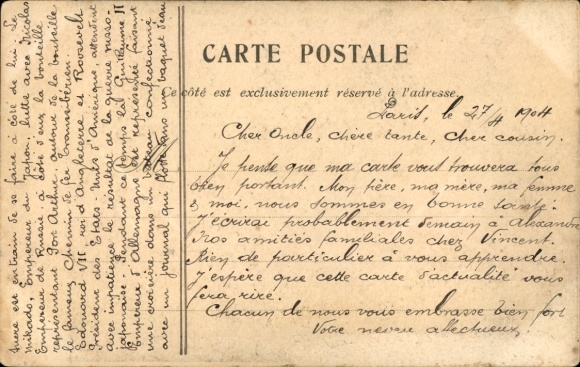 CARTE POSTALE
Ce côté est exclusivement réservé à l'adresse.
Paris, le 27/4 1904
Cher Oncle, chère tante, cher cousin.
Je pense que ma carte vous trouvera tous
bien portant. Mon père, ma mère, ma femme
& moi, nous sommes en bonne santé.
J'écrirai probablement demain à Alexandre
Nos amitiés familiales chez Vincent.
Rien de particulier à vous apprendre.
J'espère que cette carte d'actualité vous
fera rire.
Chacun de nous vous embrasse bien fort
Votre neveu affectueux,
est entrain de se faire à côté de lui. Le
Mikado, Empereur du Japon, lutte avec Nicolas
Empereur de Russie, à côté d'eux la bouteille
représentant Port Arthur autour de la bouteille
le fameux Chemin de fer Transsibérien.
Edouard VII roi d'Angleterre et Roosevelt
Président des Etats-Unis d'Amérique, attendent
avec impatience le résultat de la guerre russo-
japonaise. Pendant ce temps là Guillaume II
Empereur d'Allemagne est représenté faisant
une croisière dans un bateau confectionné
avec un journal qui flotte dans un baquet d'eau